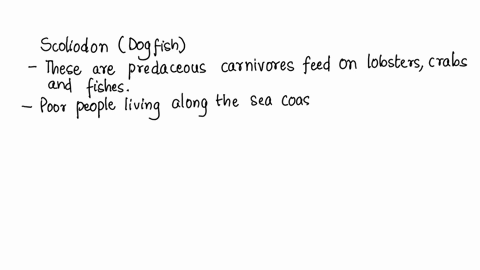 Scoliodon (Dogfish)
- These are predaceous carnivores feed on lobsters, crabs
and fishes.
- Poor people living along the sea coas